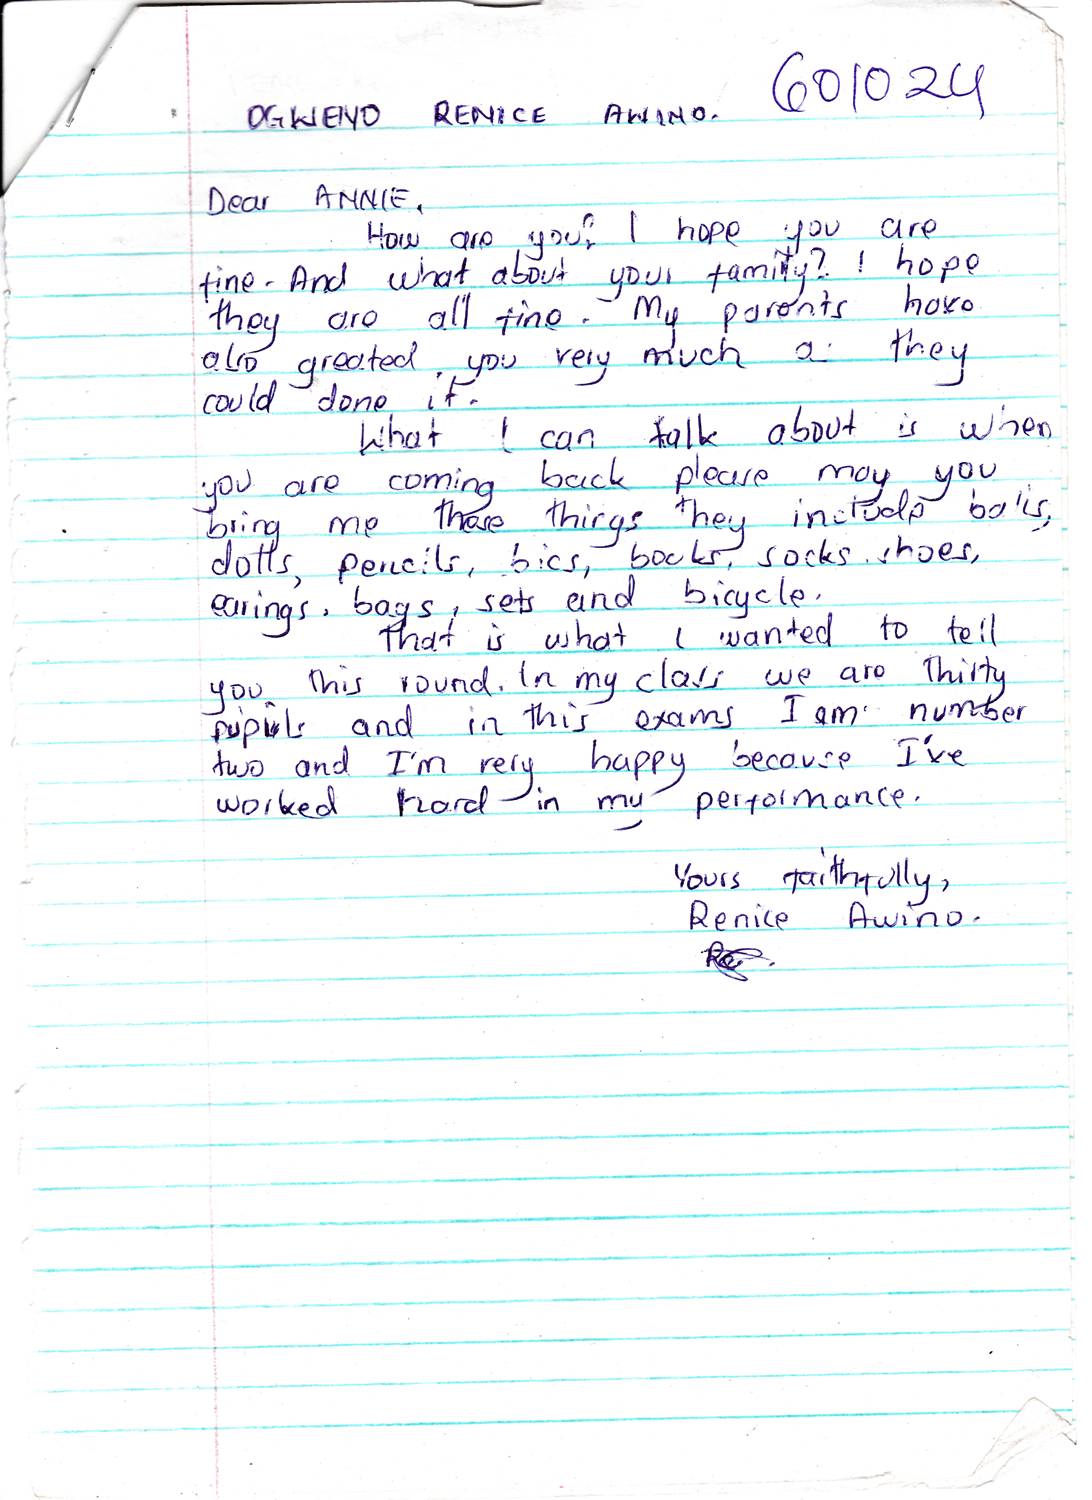 601024
OGWENO RENICE AWINO.
Dear ANNIE,
How are you? I hope you are
fine. And what about your family? I hope
they are all fine. My parents have
also greated you very much as they
could done it.
What I can talk about is when
you are coming back please may you
bring me these things they include balls,
dolls, pencils, bics, books, socks, shoes,
earings, bags, sets and bicycle.
That is what I wanted to tell
you this round. In my class we are thirty
pupils and in this exams I am number
two and I'm very happy because I've
worked hard in my performance.
Yours faithfully,
Renice Awino.